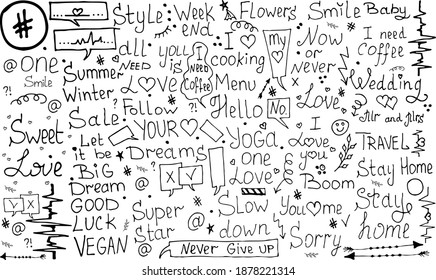 #
@ One
Smile
?!
Sweet
Love
V X
@
?!
Summer
Winter
Sale
Let
it be
Big
Dream
GOOD
LUCK
VEGAN
Style
all you
NEED is
LOVE
Follow
YOUR
Dreams
X V
@
Super
Star @
Week
end
I Need
Coffee
Never Give up
Flowers
I
cooking
Menu
Hello
YOGA
one
Love
Slow
down
my
No.
Smile
Now
or
never
Love
I
Love
you
Boom
You me
Sorry
Baby
I need
Coffee
Wedding
Mr and Mrs
?!
TRAVEL
Stay Home
Stay
home
shutterstock.com · 1878221314